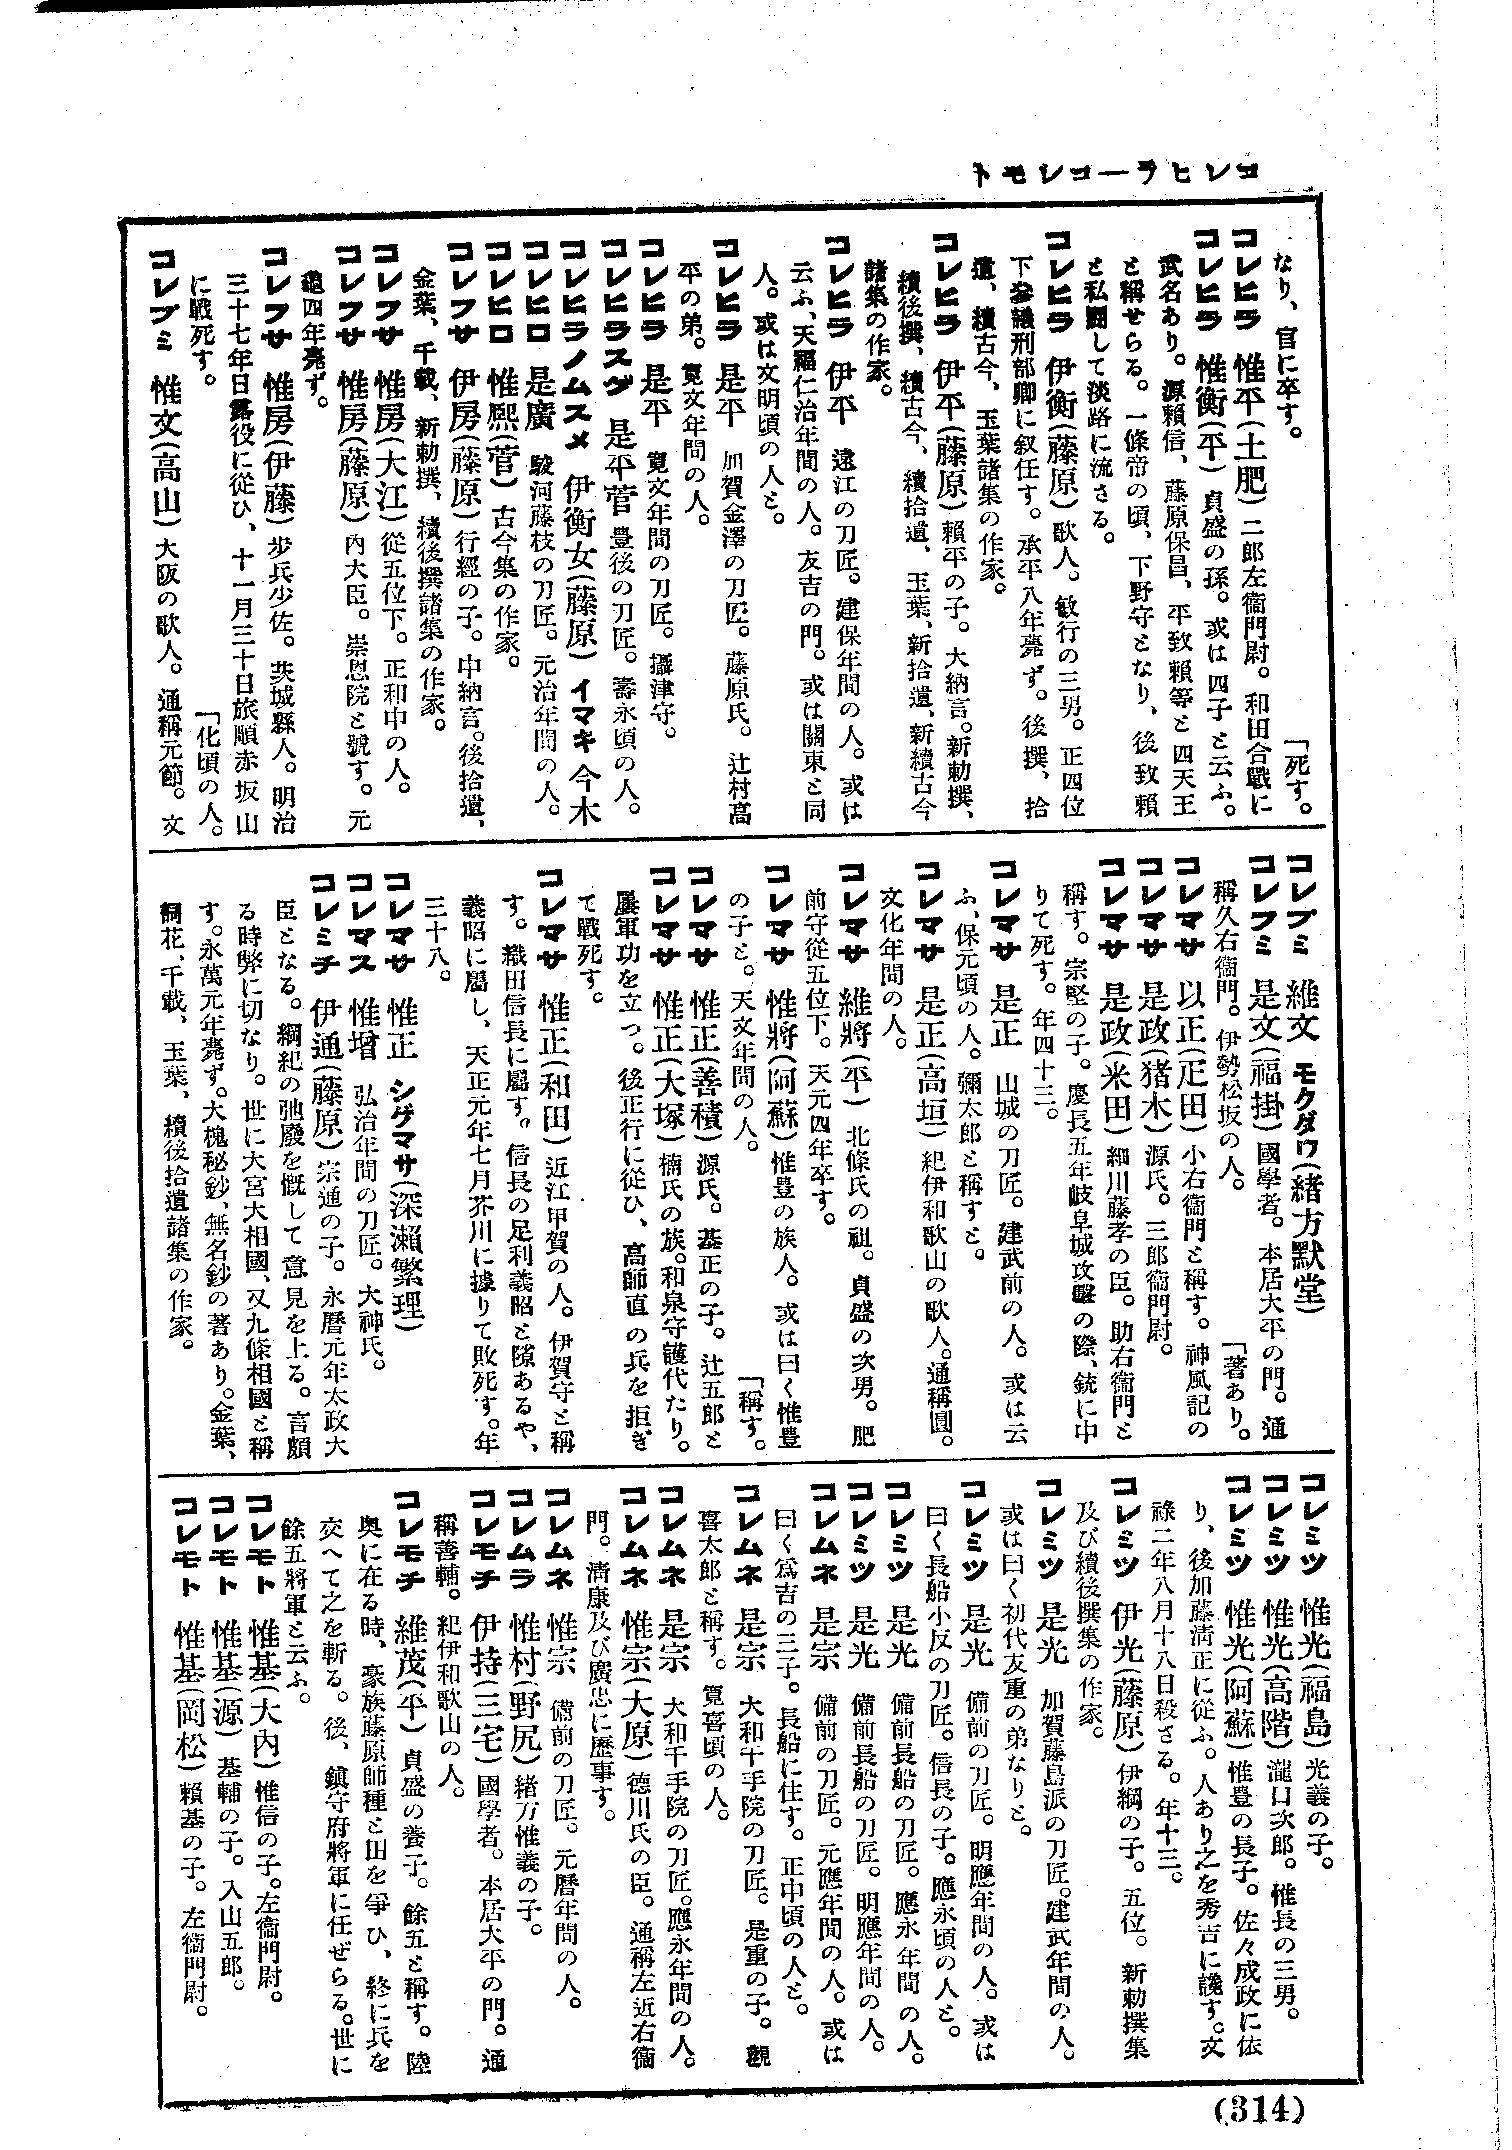 コレヒラ―コレモト
なり、官に卒す。
「死す。
コレヒラ 惟平(土肥)二郎左衞門尉。和田合戰に
コレヒラ 惟衡(平)貞盛の孫。或は四子と云ふ。
武名あり。源賴信、藤原保昌、平致賴等と四天王
と稱せらる。一條帝の頃、下野守となり、後致賴
と私鬪して淡路に流さる。
コレヒラ 伊衡(藤原)歌人。敏行の三男。正四位
下參議刑部卿に叙任す。承平八年薨ず。後撰、拾
遺、續古今、玉葉諸集の作家。
コレヒラ 伊平(藤原)賴平の子。大納言。新勅撰、
續後撰、續古今、續拾遺、玉葉、新拾遺、新續古今
諸集の作家。
コレヒラ 伊平 遠江の刀匠。建保年間の人。或は
云ふ、天福仁治年間の人。友吉の門。或は關東と同
人。或は文明頃の人と。
コレヒラ 是平 加賀金澤の刀匠。藤原氏。辻村高
平の弟。寬文年間の人。
コレヒラ 是平 寬文年間の刀匠。攝津守。
コレヒラスゲ 是平菅 豊後の刀匠。壽永頃の人。
コレヒラノムスメ 伊衡女(藤原)イマキ 今木
コレヒロ 是廣 駿河藤枝の刀匠。元治年間の人。
コレヒロ 惟熙(菅)古今集の作家。
コレフサ 伊房(藤原)行經の子。中納言。後拾遺、
金葉、千載、新勅撰、續後撰諸集の作家。
コレフサ 惟房(大江)從五位下。正和中の人。
コレフサ 惟房(藤原)內大臣。崇恩院と號す。元
龜四年薨ず。
コレフサ 惟房(伊藤)步兵少佐。茨城縣人。明治
三十七年日露役に從ひ、十一月三十日旅順赤坂山
に戰死す。
「化頃の人。
コレブミ 惟文(高山)大阪の歌人。通稱元節。文
コレブミ 維文 モクダウ(緖方默堂)
コレフミ 是文(福掛)國學者。本居大平の門。通
稱久右衞門。伊勢松坂の人。
「著あり。
コレマサ 以正(疋田)小右衞門と稱す。神風記の
コレマサ 是政(猪木)源氏。三郎衞門尉。
コレマサ 是政(米田)細川藤孝の臣。助右衞門と
稱す。宗堅の子。慶長五年岐阜城攻擊の際、銃に中
りて死す。年四十三。
コレマサ 是正 山城の刀匠。建武前の人。或は云
ふ、保元頃の人。彌太郎と稱すと。
コレマサ 是正(高垣)紀伊和歌山の歌人。通稱圓。
文化年間の人。
コレマサ 維將(平)北條氏の祖。貞盛の次男。肥
前守從五位下。天元四年卒す。
コレマサ 惟將(阿蘇)惟豊の族人。或は曰く惟豊
の子と。天文年間の人。
「稱す。
コレマサ 惟正(善積)源氏。基正の子。辻五郎と
コレマサ 惟正(大塚)楠氏の族。和泉守護代たり。
屢軍功を立つ。後正行に從ひ、高師直の兵を拒ぎ
て戰死す。
コレマサ 惟正(和田)近江甲賀の人。伊賀守と稱
す。織田信長に屬す。信長の足利義昭と隙あるや、
義昭に屬し、天正元年七月芥川に據りて敗死す。年
三十八。
コレマサ 惟正 シゲマサ(深瀨繁理)
コレマス 惟增 弘治年間の刀匠。大神氏。
コレミチ 伊通(藤原)宗通の子。永曆元年太政大
臣となる。綱紀の弛廢を慨して意見を上る。言頗
る時弊に切なり。世に大宮大相國、又九條相國と稱
す。永萬元年薨ず。大槐秘鈔、無名鈔の著あり。金葉、
詞花、千載、玉葉、續後拾遺諸集の作家。
コレミツ 惟光(福島)光義の子。
コレミツ 惟光(高階)瀧口次郎。惟長の三男。
コレミツ 惟光(阿蘇)惟豊の長子。佐々成政に依
り、後加藤淸正に從ふ。人あり之を秀吉に讒す。文
祿二年八月十八日殺さる。年十三。
コレミツ 伊光(藤原)伊綱の子。五位。新勅撰集
及び續後撰集の作家。
コレミツ 是光 加賀藤島派の刀匠。建武年間の人。
或は曰く初代友重の弟なりと。
コレミツ 是光 備前の刀匠。明應年間の人。或は
曰く長船小反の刀匠。信長の子。應永頃の人と。
コレミツ 是光 備前長船の刀匠。應永年間の人。
コレミツ 是光 備前長船の刀匠。明應年間の人。
コレムネ 是宗 備前の刀匠。元應年間の人。或は
曰く爲吉の三子。長船に住す。正中頃の人と。
コレムネ 是宗 大和千手院の刀匠。是重の子。觀
喜太郎と稱す。寬喜頃の人。
コレムネ 是宗 大和千手院の刀匠。應永年間の人。
コレムネ 惟宗(大原)德川氏の臣。通稱左近右衞
門。淸康及び廣忠に歷事す。
コレムネ 惟宗 備前の刀匠。元曆年間の人。
コレムラ 惟村(野尻)緖方惟義の子。
コレモチ 伊持(三宅)國學者。本居大平の門。通
稱善輔。紀伊和歌山の人。
コレモチ 維茂(平)貞盛の養子。餘五と稱す。陸
奧に在る時、豪族藤原師種と田を爭ひ、終に兵を
交へて之を斬る。後、鎭守府將軍に任ぜらる。世に
餘五將軍と云ふ。
コレモト 惟基(大內)惟信の子。左衞門尉。
コレモト 惟基(源)基輔の子。入山五郎。
コレモト 惟基(岡松)賴基の子。左衞門尉。
(314)